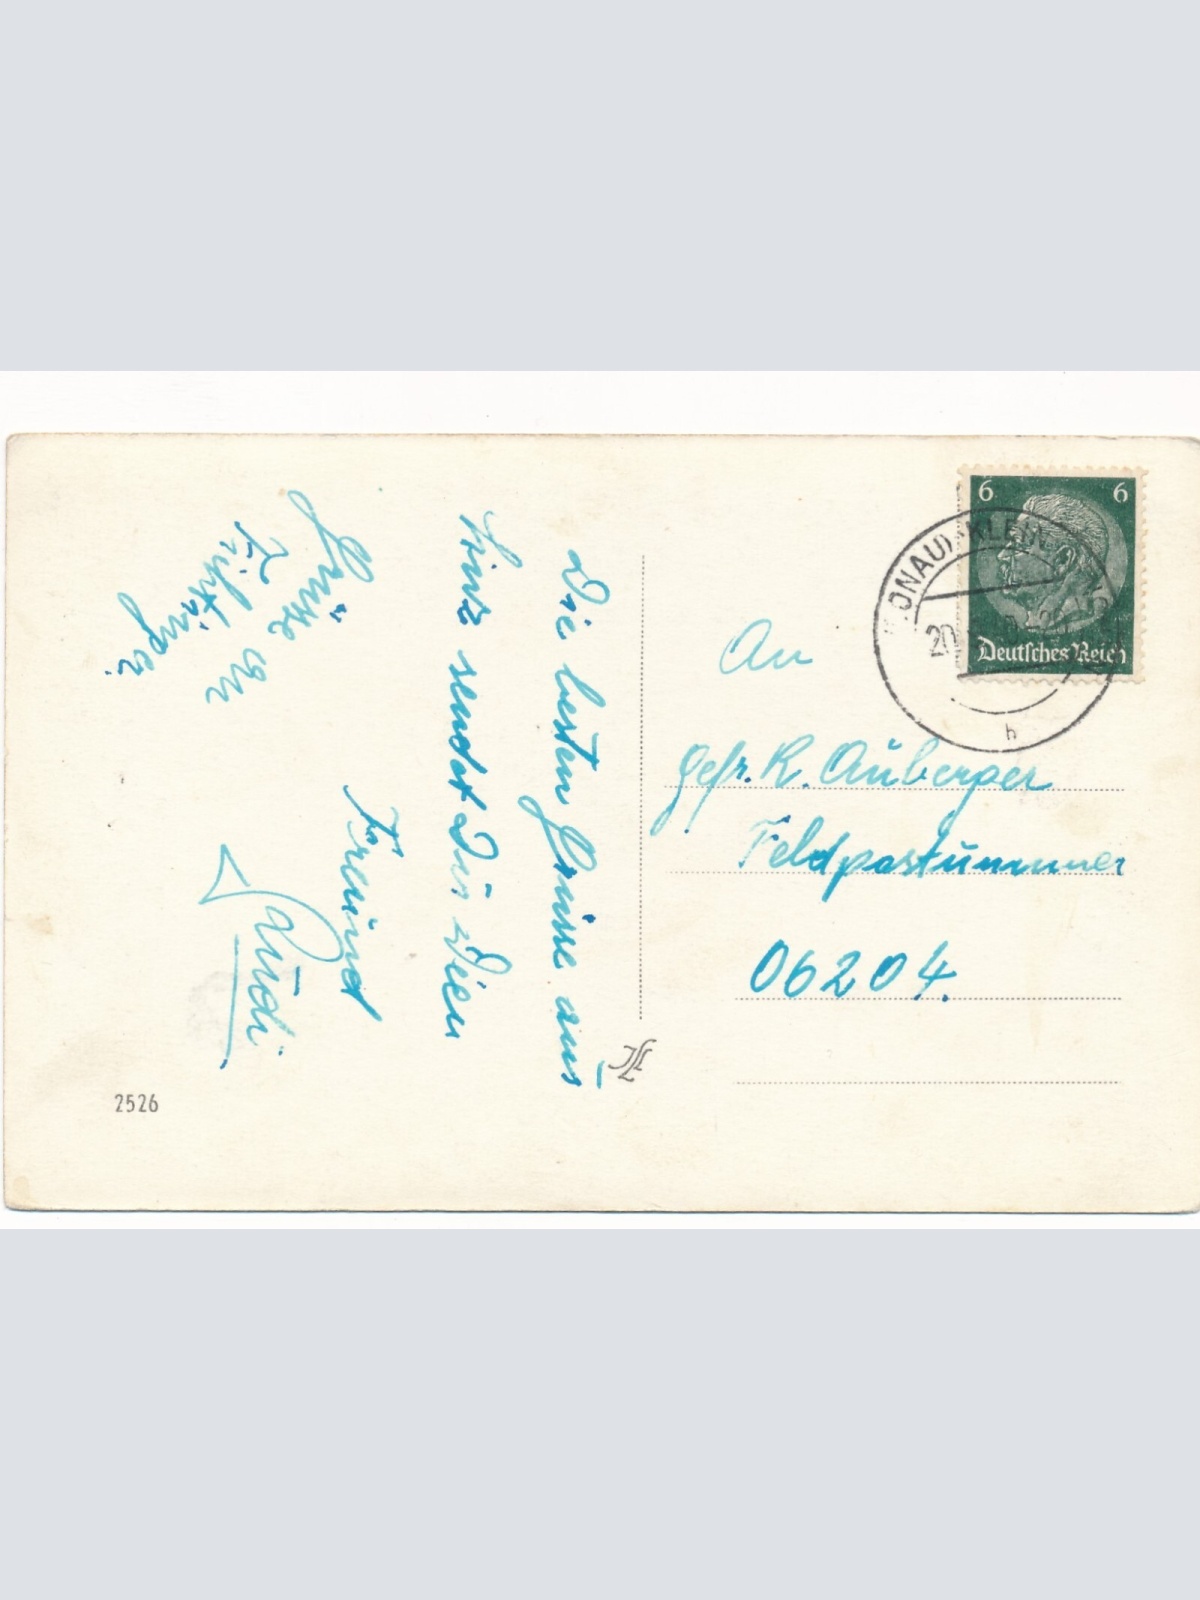 Die besten Grüsse aus
Linz sendet Dir Dein
Freund
Rudi
Grüsse an
2526
An
Gefr. R. Auberger
Feldpostnummer
06204.
6 6
Deutsches Reich
(DONAU)
20
h